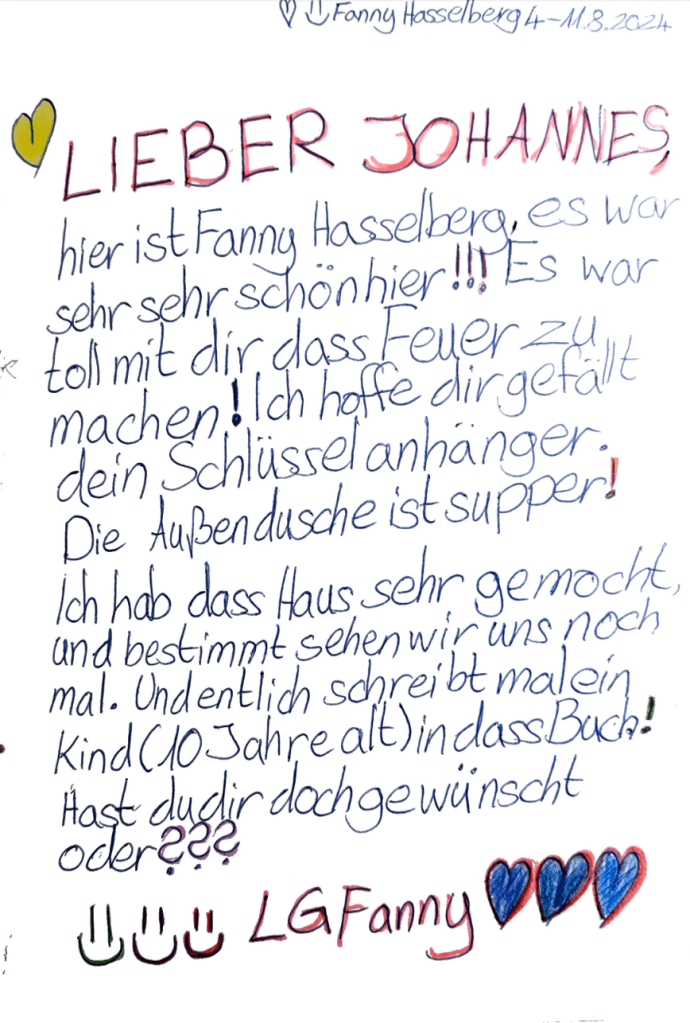 Fanny Hasselberg 4-11.8.2024
LIEBER JOHANNES,
hier ist Fanny Hasselberg, es war
sehr sehr schön hier!!! Es war
toll mit dir dass Feuer zu
machen! Ich hoffe dir gefällt
dein Schlüsselanhänger.
Die Außendusche ist supper!
Ich hab dass Haus sehr gemocht,
und bestimmt sehen wir uns noch
mal. Und entlich schreibt mal ein
Kind (10 Jahre alt) in dass Buch!
Hast du dir doch gewünscht
oder???
LG Fanny